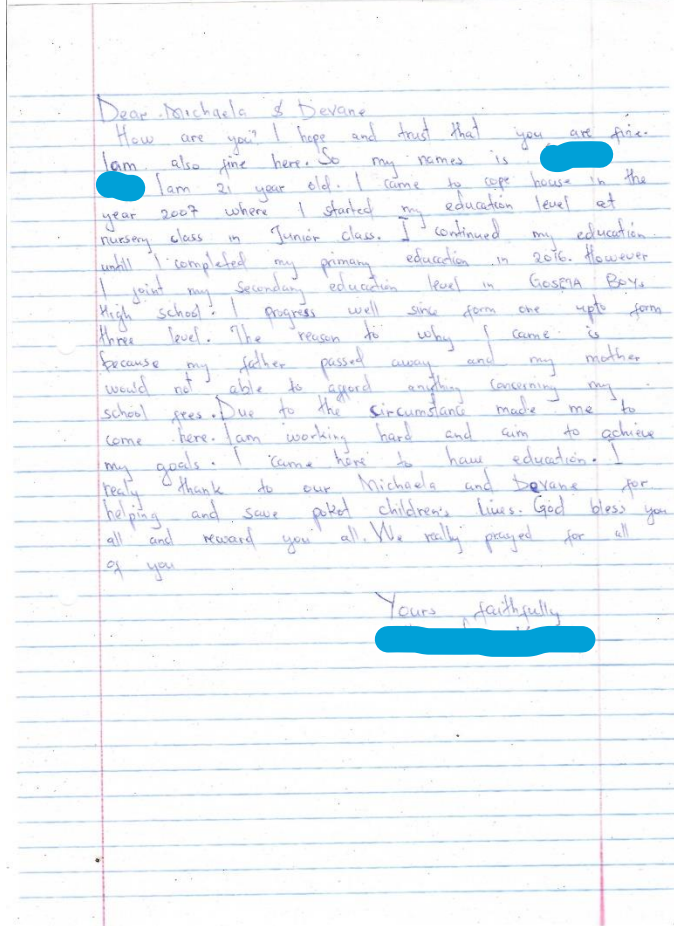 Dear Michaela & Devane
How are you? I hope and trust that you are fine.
Iam also fine here. So my names is
Iam 21 year old. I came to cope house in the
year 2007 where I started my education level at
nursery class in Junior class. I continued my education
untill I completed my primary education in 2016. However
I joint my secondary education level in GOSETA BOYS
High school. I progress well since form one upto form
three level. The reason to why I came is
because my father passed away and my mother
would not able to afford anything concerning my
school fees. Due to the circumstance made me to
come here. Iam working hard and aim to achieve
my goals. I came here to have education. I
realy thank to our Michaela and Devane for
helping and save pokot children's lives. God bless you
all and reward you all. We really prayed for all
of you
Yours faithfully